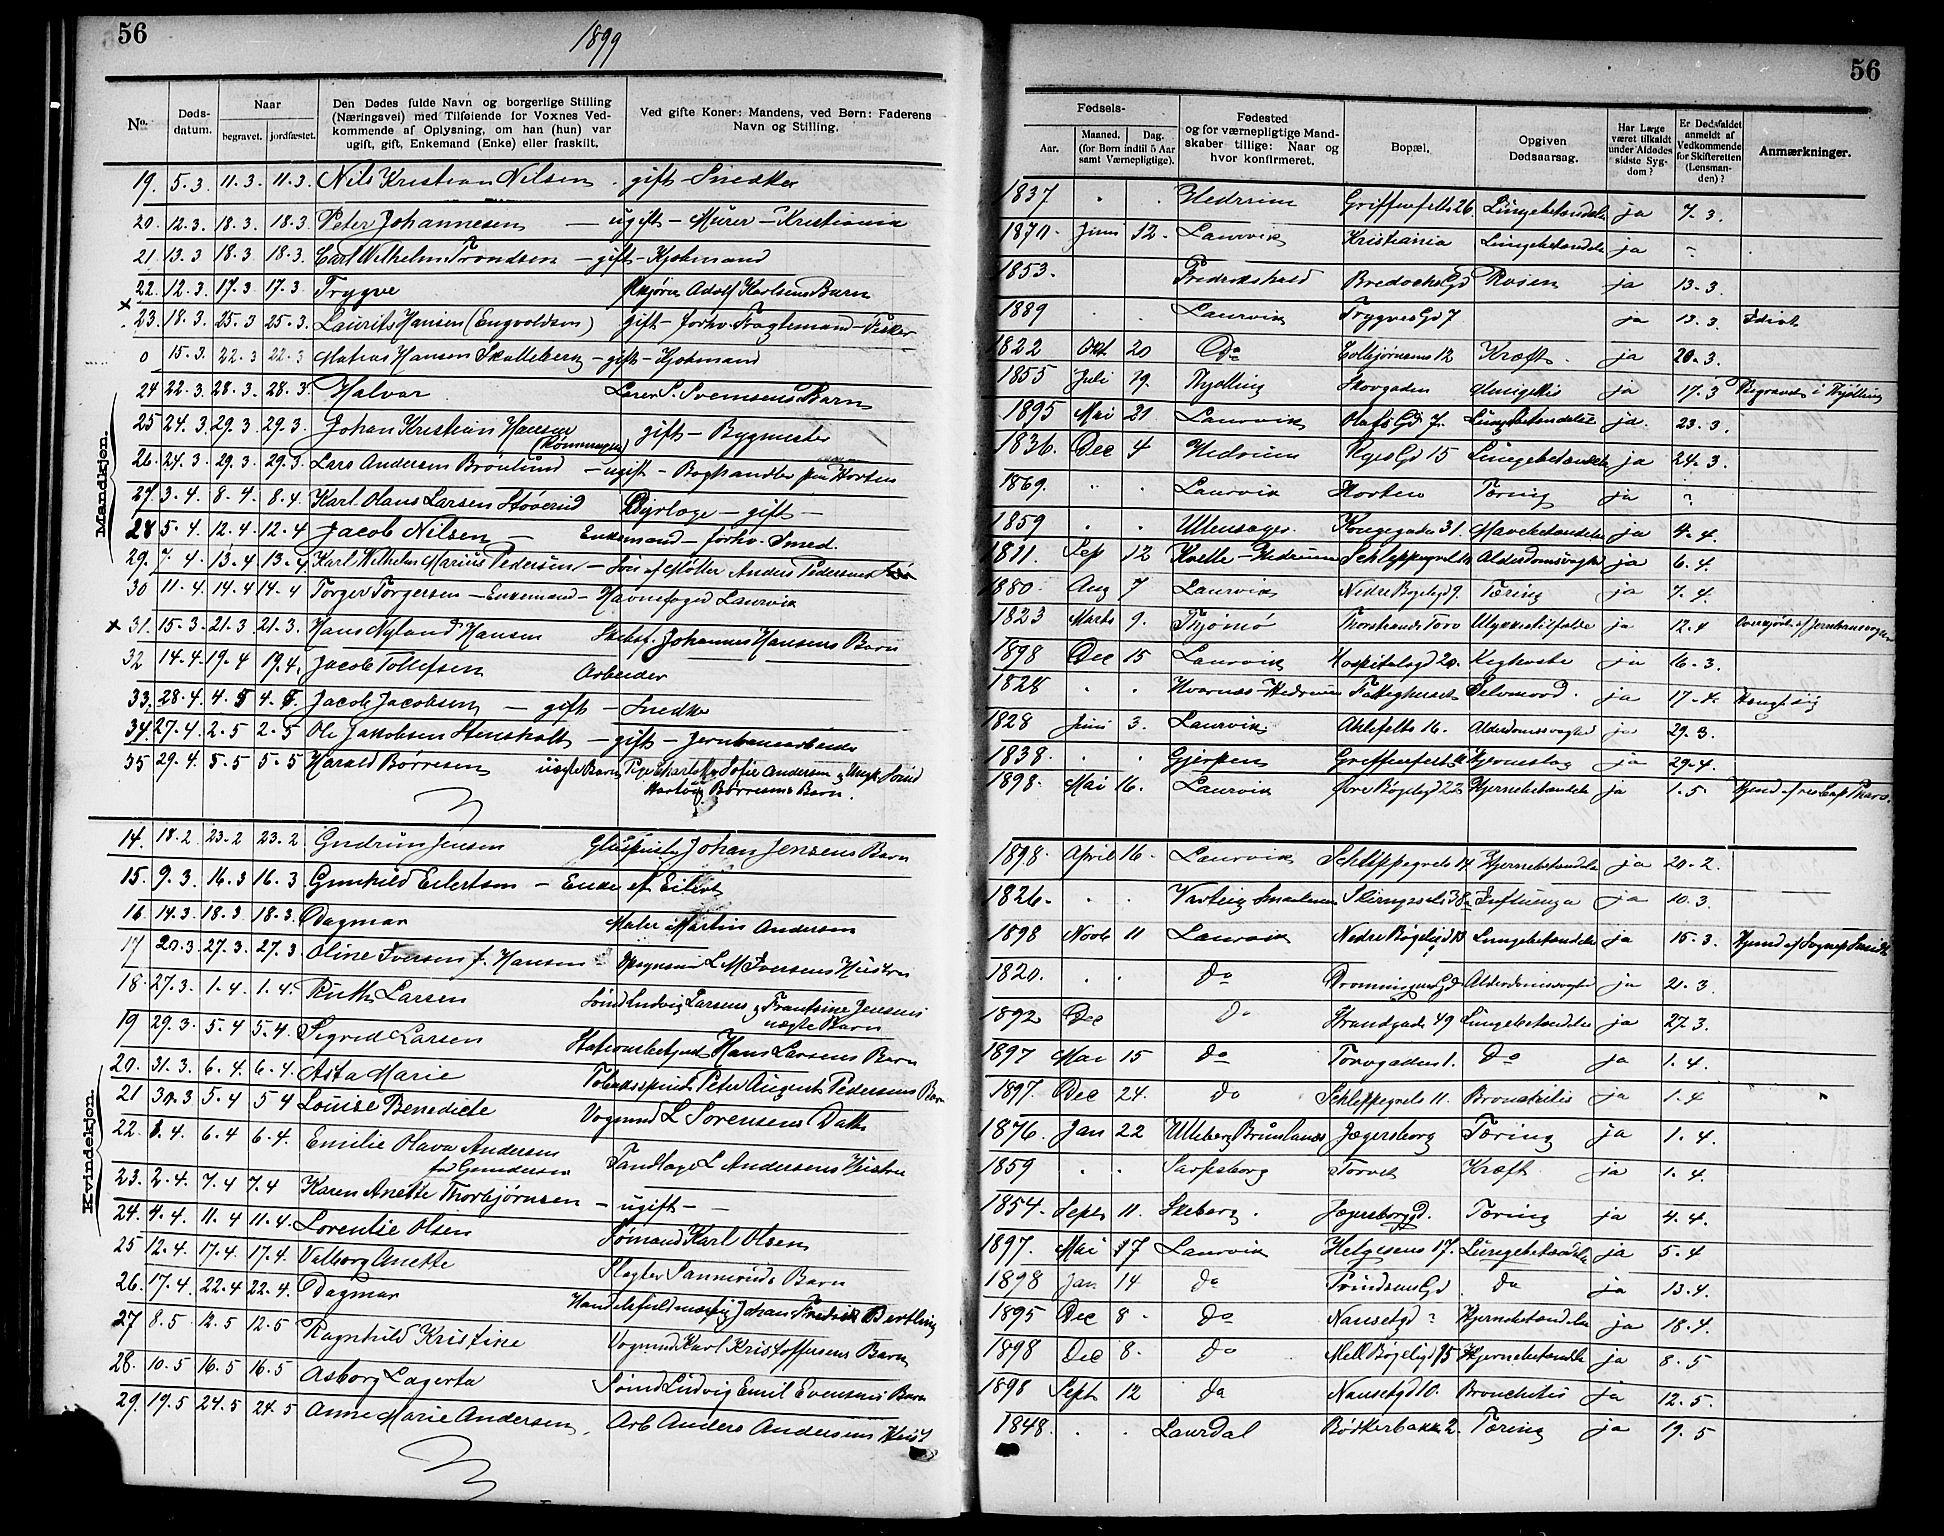 56
1899
No.
Døds-
datum.
Naar
begravet.
jordfæstet.
Den Dødes fulde Navn og borgerlige Stilling
(Næringsvei) med Tilføiende for Voxnes Ved-
kommende af Oplysning, om han (hun) var
ugift, gift, Enkemand (Enke) eller fraskilt.
Ved gifte Koner: Mandens, ved Børn: Faderens
Navn og Stilling.
Mandkjøn.
19. 5.3. 11.3. 11.3. Nils Kristian Nilsen. gift - Snedker
20. 12.3. 18.3. 18.3. Peter Johannesen - ugift - Murer - Kristiania
21. 13.3 18.3. 18.3. Carl Wilhelm Trondsen - gift - Kjøbmand
22. 12.3. 17.3 17.3 Trygve Adolf Karlsens Barn
x 23. 18.3. 25.3 25.3. Laurits Hansen (Engvoldsen) gift - forhv. Fragtemand - Fisker
0 15.3. 22.3 22.3 Matias Hansen Skalleberg - gift - Kjøbmand
24 22.3. 28.3. 28.3. Halvor S. Svensens Barn
25 24.3. 29.3. 29.3. Johan Kristian Hansen gift - Bygmester
(Rønningen)
26. 24.3. 29.3. 29.3. Lars Andersen Brønlund - ugift - Boghandler fra Horten
27. 3.4. 8.4. 8.4. Karl Olaus Larsen Støverud Dyrlæge - gift -
28 5.4. 12.4. 12.4 Jacob Nilsen - Enkemand - forhv. Smed.
29. 7.4. 13.4 13.4 Karl Wilhelm Marius Pedersen - Søn af Møller Anders Pedersen
30 11.4. 14.4 14.4 Torger Torgersen - Enkemand - Havnefoged Laurvik
x 31. 15.3. 21.3. 21.3. Hans Nyland Hansen Johannes Hansens Barn
32 14.4. 19.4 19.4. Jacob Tollefsen Arbeider
33. 28.4. 4.5 4.5. Jacob Jacobsen - gift - Snedker
34. 27.4. 2.5 2.5 Ole Jakobsen Stensholt - gift - Jernbanearbeider
35 29.4. 5.5 5.5 Harald Børresen uægte Barn Pige Sofie Andersen
Børresens Barn.
Kvindekjøn.
14. 18.2 23.2 23.2 Gudrun Jensen Johan Jensens Barn
15. 9.3. 16.3 16.3 Gunhild Eilertsen - Enke ef. Eilert
16. 14.3. 18.3. 18.3. Dagmar Maler Martin Andersen
17 20.3. 27.3. 27.3 Oline Iversen f. Hansen - L M Iversens Hustru
18. 27.3. 1.4. 1.4. Ruth Larsen Ludvig Larsens og Frantsine Jensens
uægte Barn
19 29.3. 5.4 5.4. Sigrid Larsen Hans Larsens Barn
20. 31.3. 6.4. 6.4. Asta Marie Peter August Pedersens Barn
21 30.3 5.4 5 4 Louise Benedicte Vognmd L Sørensens Datter
22. 1.4. 6.4 6.4. Emilie Olava Andersen Tandlæge L Andersens Hustru
23. 2.4. 7.4 7.4 Karen Anette Thorbjørnsen - ugift -
24. 4.4. 11.4 11.4. Lorentse Olsen Sømand Karl Olsen
25 12.4. 17.4. 17.4. Valborg Anette Slagter Sanneruds Barn
26. 17.4 22.4 22.4. Dagmar Johan Fredrik Bertling
27 8.5 12.5 12.5 Ragnhild Kristine Vognmd Karl Kristoffersens Barn
28. 10.5 16.5 16.5 Asborg Lagerta Ludvig Emil Evensens Barn
29. 19.5 24.5 24.5 Anne Marie Andersen, Arb. Anders Andersens Hust
56
Fødsels-
Aar.
Maaned. Dag.
(for Børn indtil 5 Aar
samt Værnepligtige).
Fødested
og for værnepligtige Mand-
skaber tillige: Naar og
hvor konfirmeret.
Bopæl.
Opgiven
Dødsaarsag.
Har Læge
været tilkaldt
under Afdødes
sidste Syg-
dom?
Er Dødsfaldet
anmeldt af
Vedkommende
for Skifteretten
(Lensman-
den)?
Anmærkninger.
1837 Hedrum Griffenfelts 26 Lungebetændelse ja 7.3.
1870. Juni 12. Laurvik Kristiania Lungebetændelse ja -
1853. Fredrikshald Rosen ja 13.3.
1889 Laurvik Trygvesgd 7 ja 13.3. Idiot
1822 Okt. 20 Do Colbjørnsens 12 Kræft. ja 20.3.
1855 Juli 19. Tjydling Skovgaden ja 17.3 Begravet i Tjydling
1895 Mai 21. Laurvik Olafsgd 7. Lungebetændelse ja. 23.3.
1836. Dec 4 Hedrum 15 Lungebetændelse ja 24.3.
1869. Laurvik Horten Tæring ja ?
1859 Ullensager Kongegaden 31. Mavebetændelse ja 4.4.
1811. Sep 12 Kvelle - Hedrum Schleppegrels Alderdomssvaghed ja 6.4.
1880. Aug 7 Laurvik Nedre Bøgeligd 9. Tæring ja 7.4.
1823 Marts 9. Tjømø Thorstrands Torv Ulykkestilfælde ja 12.4 Overkjørt af Jernbanevogn
1898 Dec 15 Laurvik Hospitalsgd 20. Kighoste ja 16.3.
1828 Hvarnes - Hedrum Fattighuset Selvmord. ja 17.4. Hængt sig
1828 Juni 3. Laurvik Ahlefelts 16. Alderdomssvaghed ja 29.3.
1838. Gjerpen Griffenfelts Hjerneslag ja 29.4.
1898. Mai 16. Laurvik Øvre Bøgeligd 22 Hjernebetændelse ja 1.5.
1898. April 16. Laurvik Schleppegrels 14 Hjernebetændelse ja 20.2.
1826. Varteig Smaalenene 38a Influenza ja 10.3.
1898 Novb 11 Laurvik Nedre Bøgeligd 13 Lungebetændelse ja 15.3.
1820. Do Dronningensgd Alderdomssvaghed ja 21.3.
1892 Dec Do Strandgade 49 Lungebetændelse ja 27.3.
1897 Mai 15 Do Torvgaden 1. Do ja 1.4.
1897. Dec 24. Do Schleppegrels 11. Bronchitis ja 1.4
1876. Jan 22 Ulleberg Brunlanes Jægersborg Tæring ja 1.4.
1859 Sarpsborg Torvet Kræft ja 1.4.
1854. Septs 11. Skeberg. Jægersborggd. Tæring ja 4.4.
1897. Mai 17 Laurvik Helgesens 17. Lungebetændelse ja 5.4
1898 Jan 14 Do do ja 13.4.
1895 Dec 8. Do Nansetgd ? Hjernebetændelse ja 18.4.
1898 Dec 8. Do Mell Bøgeligd 15 Hjernebetændelse ja 8.5
1898 Sept 12 Do Nansetgd 10. Bronchitis ja 12.5.
1848. Laurdal Bødkerbakk 2. Tæring ja 19.5